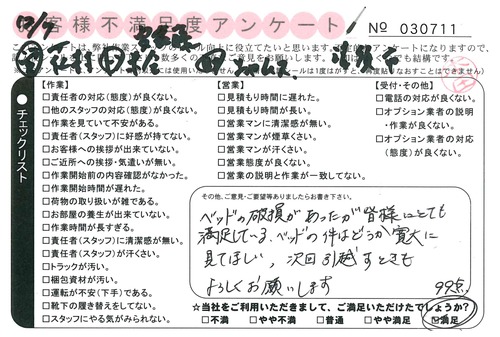 お客様不満足度アンケート
No 030711
このアンケートは、弊社作業スタッフのレベル向上に役立てたいと思います。
チェックリスト
【作業】
□責任者の対応(態度)が良くない。
□他のスタッフの対応(態度)が良くない。
□作業を見ていて不安がある。
□責任者(スタッフ)に好感が持てない。
□お客様への挨拶が出来ていない。
□ご近所への挨拶・気遣いが無い。
□作業開始前の内容確認がなかった。
□作業開始時間が遅れた。
□荷物の取り扱いが雑である。
□お部屋の養生が出来ていない。
□作業時間が長すぎる。
□責任者(スタッフ)に清潔感が無い。
□責任者(スタッフ)が汗くさい。
□トラックが汚い。
□梱包資材が汚い。
□運転が不安(下手)である。
□靴下の履き替えをしてない。
□スタッフにやる気がみられない。
【営業】
□見積もり時間に遅れた。
□見積もり時間が長い。
□営業マンに清潔感が無い。
□営業マンが煙草くさい。
□営業マンが汗くさい。
□営業態度が良くない。
□営業の説明と作業が一致してない。
【受付・その他】
□電話の対応が良くない。
□オプション業者の説明
・作業が良くない。
□オプション業者の対応
(態度)が良くない。
その他、ご意見・ご要望等ありましたらお書き下さい。
ベッドの破損があったが皆様にとても
満足している。ベッドの件はどうか寛大に
見てほしい、次回引越すときも
よろしくお願いします
99点
☆当社をご利用いただきまして、ご満足いただけたでしょうか?
□不満 □やや不満 □普通 □やや満足 ☑満足